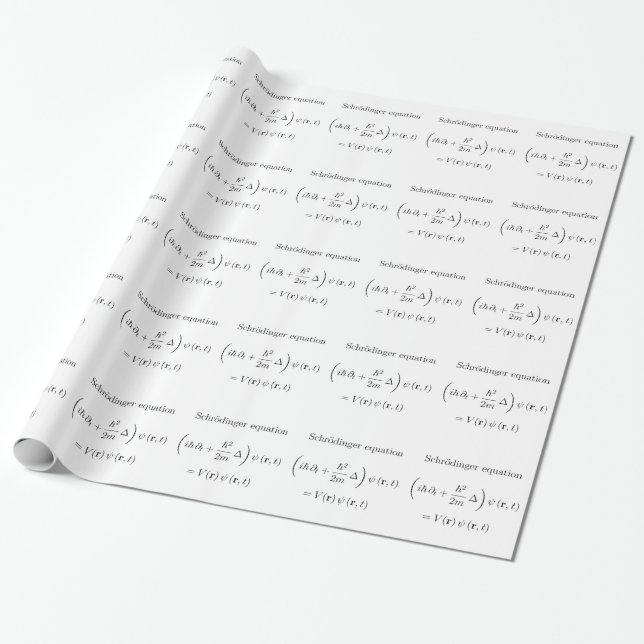 equation
Schrödinger equation
(iħ∂ₜ + ħ²/2m Δ) ψ(r, t)
= V(r) ψ(r, t)
Schrödinger equation
(iħ∂ₜ + ħ²/2m Δ) ψ(r, t)
= V(r) ψ(r, t)
Schrödinger equation
(iħ∂ₜ + ħ²/2m Δ) ψ(r, t)
= V(r) ψ(r, t)
Schrödinger equation
(iħ∂ₜ + ħ²/2m Δ) ψ(r, t)
= V(r) ψ(r, t)
Schrödinger equation
(iħ∂ₜ + ħ²/2m Δ) ψ(r, t)
= V(r) ψ(r, t)
Schrödinger equation
(iħ∂ₜ + ħ²/2m Δ) ψ(r, t)
= V(r) ψ(r, t)
Schrödinger equation
(iħ∂ₜ + ħ²/2m Δ) ψ(r, t)
= V(r) ψ(r, t)
Schrödinger equation
(iħ∂ₜ + ħ²/2m Δ) ψ(r, t)
= V(r) ψ(r, t)
Schrödinger equation
(iħ∂ₜ + ħ²/2m Δ) ψ(r, t)
= V(r) ψ(r, t)
Schrödinger equation
(iħ∂ₜ + ħ²/2m Δ) ψ(r, t)
= V(r) ψ(r, t)
Schrödinger equation
(iħ∂ₜ + ħ²/2m Δ) ψ(r, t)
= V(r) ψ(r, t)
Schrödinger equation
(iħ∂ₜ + ħ²/2m Δ) ψ(r, t)
= V(r) ψ(r, t)
Schrödinger equation
(iħ∂ₜ + ħ²/2m Δ) ψ(r, t)
= V(r) ψ(r, t)
Schrödinger equation
(iħ∂ₜ + ħ²/2m Δ) ψ(r, t)
= V(r) ψ(r, t)
Schrödinger equation
(iħ∂ₜ + ħ²/2m Δ) ψ(r, t)
= V(r) ψ(r, t)
Schrödinger equation
(iħ∂ₜ + ħ²/2m Δ) ψ(r, t)
= V(r) ψ(r, t)
Schrödinger equation
(iħ∂ₜ + ħ²/2m Δ) ψ(r, t)
= V(r) ψ(r, t)
Schrödinger equation
(iħ∂ₜ + ħ²/2m Δ) ψ(r, t)
= V(r) ψ(r, t)
Schrödinger equation
(iħ∂ₜ + ħ²/2m Δ) ψ(r, t)
= V(r) ψ(r, t)
Schrödinger equation
(iħ∂ₜ + ħ²/2m Δ) ψ(r, t)
= V(r) ψ(r, t)